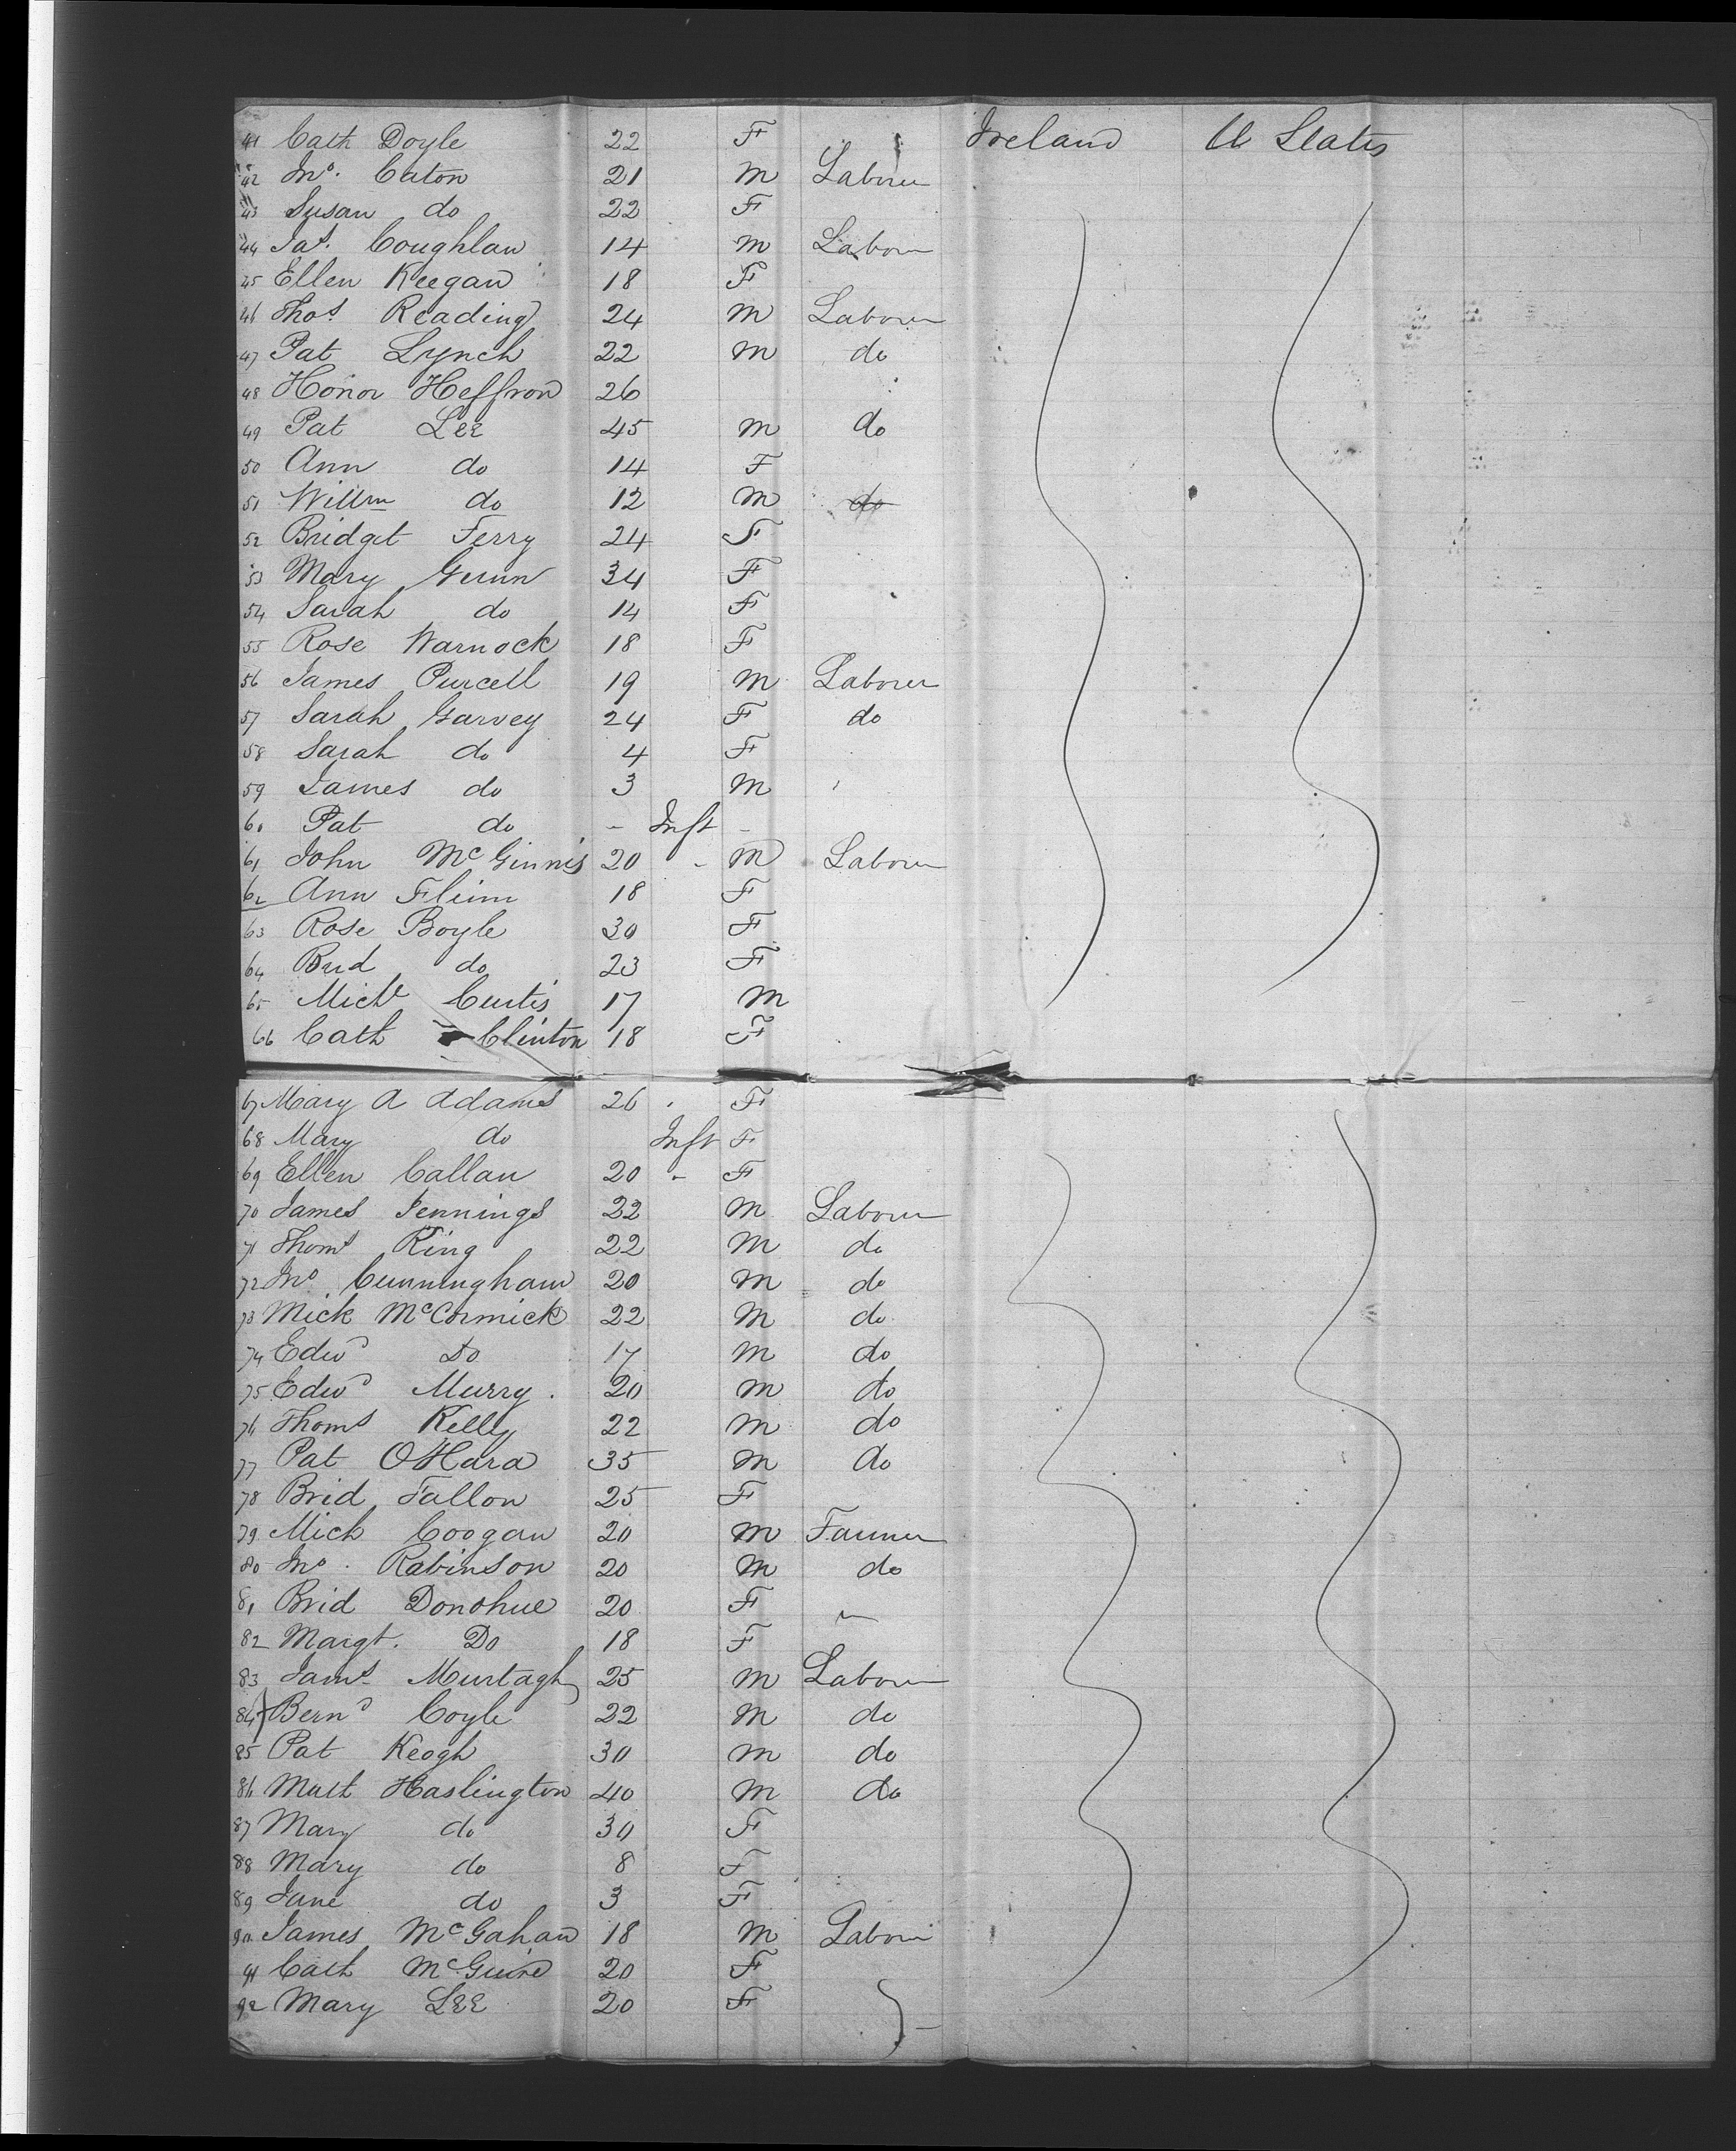 41 Cath Doyle 22 F Ireland U States
42 Jno. Caton 21 m Laborer
43 Susan do 22 F
44 Jas. Coughlan 14 m Laborer
45 Ellen Keegan 18 F
46 Thos. Reading 24 m Laborer
47 Pat Lynch 22 m do
48 Honor Heffron 26
49 Pat Lee 45 m do
50 Ann do 14 F
51 Willm do 12 m do
52 Bridget Ferry 24 F
53 Mary Gunn 34 F
54 Sarah do 14 F
55 Rose Warnock 18 F
56 James Purcell 19 m Laborer
57 Sarah Garvey 24 F do
58 Sarah do 4 F
59 James do 3 m
60 Pat do - Inft -
61 John McGinnis 20 - m Laborer
62 Ann Flinn 18 F
63 Rose Boyle 30 F
64 Brid do 23 F
65 Michl Curtis 17 m
66 Cath Clinton 18 F
67 Mary A Adams 26 F
68 Mary do Inft F
69 Ellen Callan 20 - F
70 James Jennings 22 m Laborer
71 Thoms King 22 m do
72 Jno Cunningham 20 m do
73 Mick McCormick 22 m do
74 Edwd Do 17 m do
75 Edwd Murry. 20 m do
76 Thoms Kelly 22 m do
77 Pat OHara 35 m do
78 Brid Fallon 25 F
79 Mich Coogan 20 m Farmer
80 Jno. Rabinson 20 m do
81 Brid Donohue 20 F
82 Margt. Do 18 F
83 Jams Murtagh 25 m Laborer
84 Bernd Coyle 22 m do
85 Pat Keogh 30 m do
86 Matt Haslington 40 m do
87 Mary do 30 F
88 Mary do 8 F
89 Jane do 3 F
90 James McGahan 18 m Laborer
91 Cath McGuire 20 F
92 Mary Lee 20 F